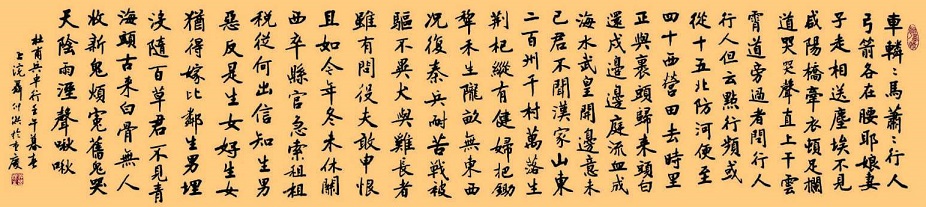 車轔〻馬蕭〻行人
弓箭各在腰耶娘妻
子走相送塵埃不見
咸陽橋牽衣頓足攔
道哭哭聲直上干雲
霄道旁過者問行人
行人但云點行頻或
從十五北防河便至
四十西營田去時里
正與裹頭歸來頭白
還戍邊邊庭流血成
海水武皇開邊意未
已君不聞漢家山東
二百州千村萬落生
荊杞縱有健婦把鋤
犂禾生隴畝無東西
況復秦兵耐苦戰被
驅不異犬與雞長者
雖有問役夫敢申恨
且如今年冬未休關
西卒縣官急索租租
稅從何出信知生男
惡反是生女好生女
猶得嫁比鄰生男埋
沒隨百草君不見青
海頭古來白骨無人
收新鬼煩冤舊鬼哭
天陰雨溼聲啾啾
杜甫兵車行壬午暮春
上浣聶仲於重慶